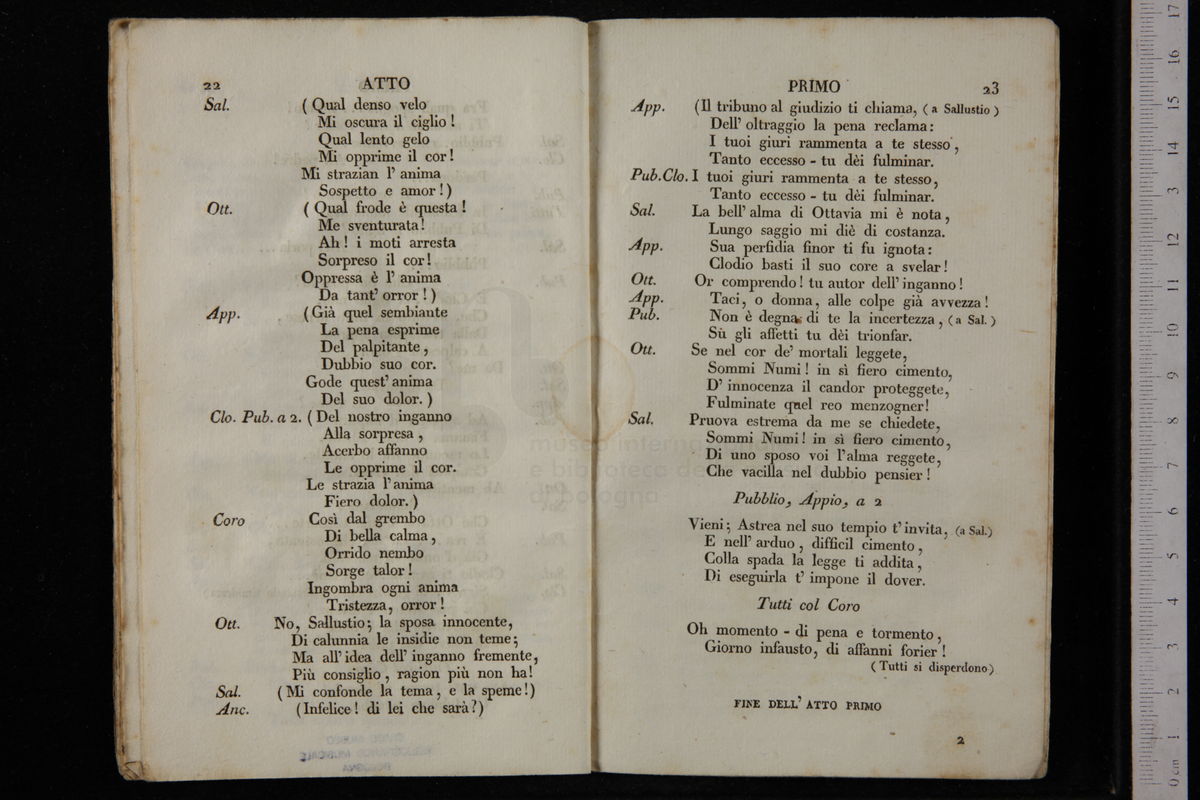 22 ATTO
Sal. ( Qual denso velo
Mi oscura il ciglio !
Qual lento gelo
Mi opprime il cor !
Mi strazian l' anima
Sospetto e amor ! )
Ott. ( Qual frode è questa !
Me sventurata !
Ah ! i moti arresta
Sorpreso il cor !
Oppressa è l' anima
Da tant' orror ! )
App. ( Già quel sembiante
La pena esprime
Del palpitante ,
Dubbio suo cor.
Gode quest' anima
Del suo dolor. )
Clo. Pub. a 2. ( Del nostro inganno
Alla sorpresa ,
Acerbo affanno
Le opprime il cor.
Le strazia l' anima
Fiero dolor. )
Coro Così dal grembo
Di bella calma ,
Orrido nembo
Sorge talor !
Ingombra ogni anima
Tristezza, orror !
Ott. No, Sallustio; la sposa innocente,
Di calunnia le insidie non teme;
Ma all' idea dell' inganno fremente,
Più consiglio , ragion più non ha!
Sal. ( Mi confonde la tema , e la speme!)
Anc. (Infelice! di lei che sarà?)
PRIMO 23
App. (Il tribuno al giudizio ti chiama, ( a Sallustio )
Dell' oltraggio la pena reclama:
I tuoi giuri rammenta a te stesso ,
Tanto eccesso - tu dèi fulminar.
Pub. Clo. I tuoi giuri rammenta a te stesso,
Tanto eccesso - tu dèi fulminar.
Sal. La bell' alma di Ottavia mi è nota ,
Lungo saggio mi diè di costanza.
App. Sua perfidia finor ti fu ignota:
Clodio basti il suo core a svelar!
Ott. Or comprendo! tu autor dell' inganno !
App. Taci, o donna, alle colpe già avvezza !
Pub. Non è degna di te la incertezza , ( a Sal. )
Sù gli affetti tu dèi trionfar.
Ott. Se nel cor de' mortali leggete,
Sommi Numi! in sì fiero cimento,
D' innocenza il candor proteggete,
Fulminate quel reo menzogner!
Sal. Pruova estrema da me se chiedete,
Sommi Numi! in sì fiero cimento,
Di uno sposo voi l'alma reggete,
Che vacilla nel dubbio pensier !
Pubblio, Appio, a 2
Vieni; Astrea nel suo tempio t' invita, (a Sal.)
E nell' arduo , difficil cimento ,
Colla spada la legge ti addita ,
Di eseguirla t' impone il dover.
Tutti col Coro
Oh momento - di pena e tormento ,
Giorno infausto, di affanni forier !
( Tutti si disperdono)
FINE DELL' ATTO PRIMO
2